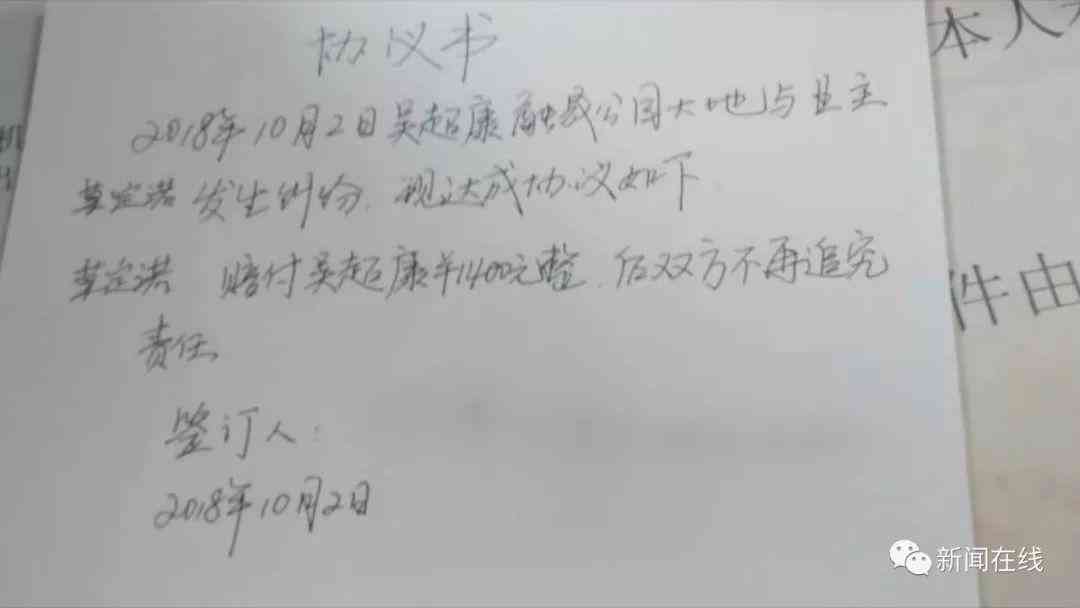 协议书
2018年10月2日吴超康融晟公园大地与业主
草定洪发生纠纷.现达成协议如下
草定洪 赔付吴超康羊1400元整.后双方不再追究
责任.
签订人:
2018年10月2日
本人
件由
新闻在线